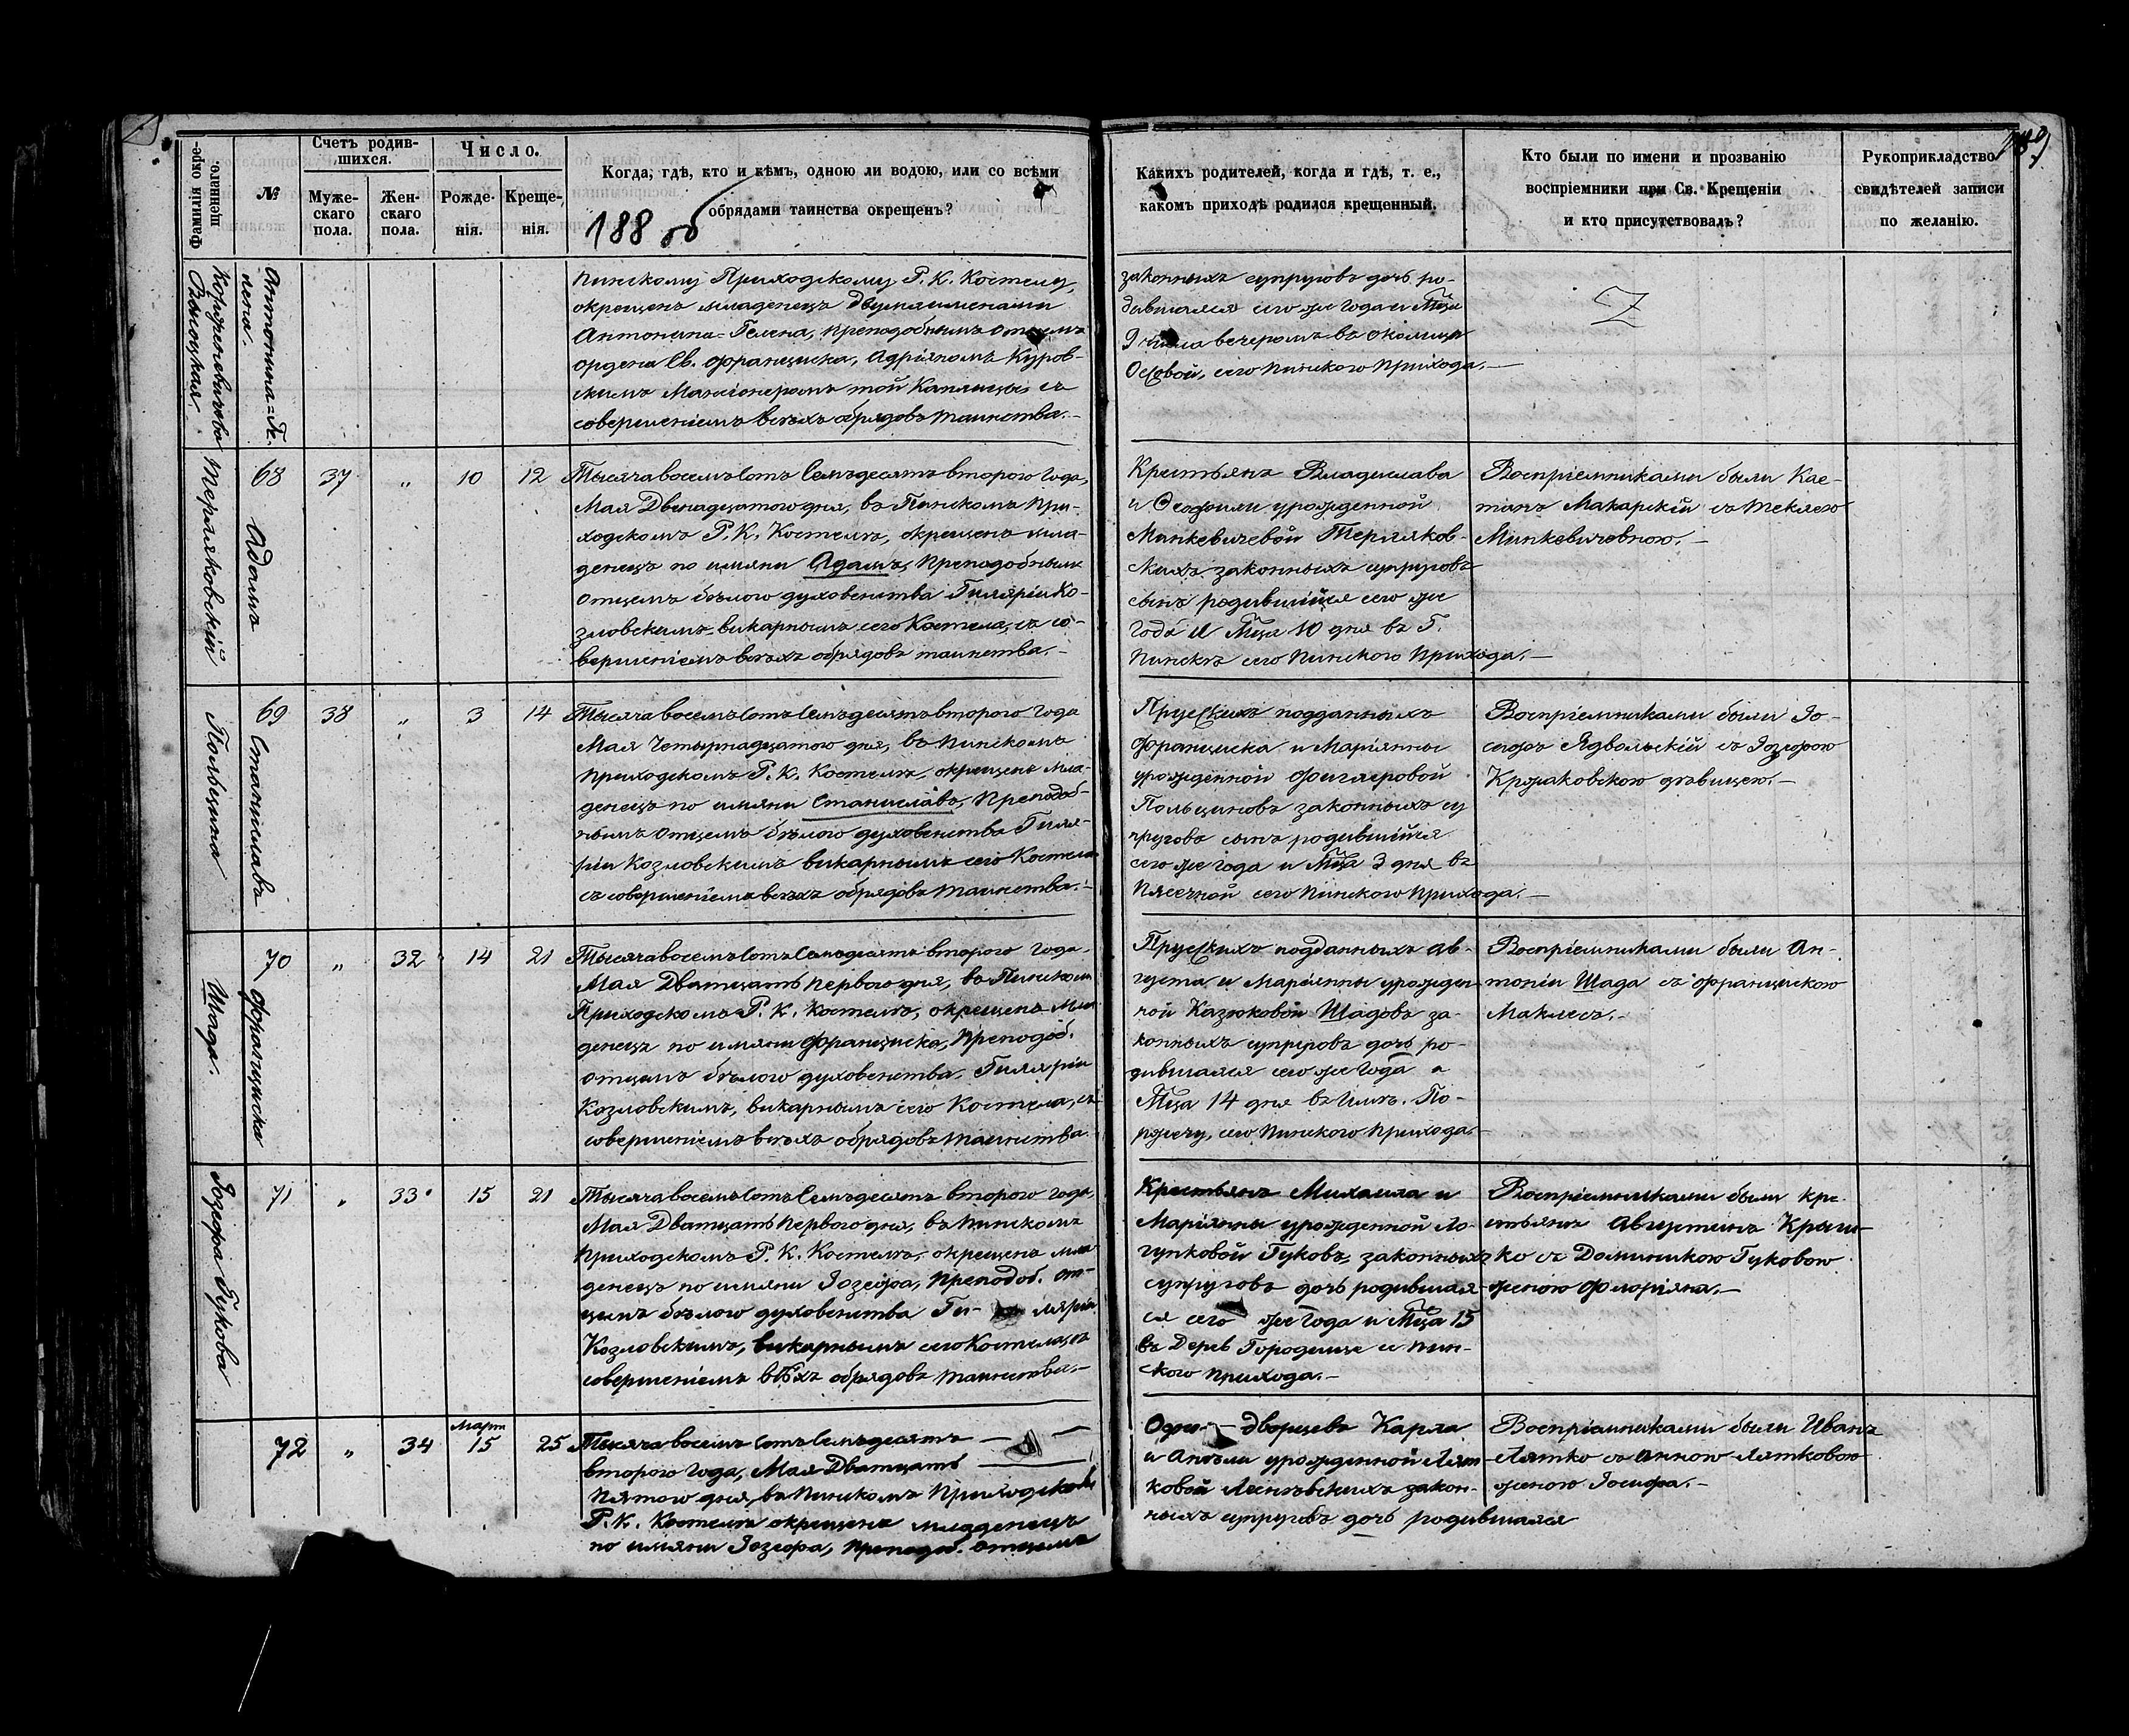 Фамилія окре-
щеннаго.
№
Счетъ родив-
шихся.
Муже-
скаго
пола.
Жен-
скаго
пола.
Число.
Рожде-
нія.
Креще-
нія.
Когда, гдѣ, кто и кѣмъ, одною ли водою, или со всѣми
обрядами таинства окрещенъ?
188 об
Какихъ родителей, когда и гдѣ, т. е.,
какомъ приходѣ родился крещенный.
Кто были по имени и прозванію
воспріемники при Св. Крещеніи
и кто присутствовалъ?
Рукоприкладство
свидѣтелей записи
по желанію.
Высоцкая.
Антонина=Ге-
лена.
Пинскому Приходскому Р. К. Костелу,
окрещенъ младенецъ двумя именами
Антонина-Гелена, преподобнымъ отцемъ
ордена Св. Франциска, Адріяномъ Куров-
скимъ Мансіонеромъ той Каплицы, съ
совершеніемъ всѣхъ обрядовъ таинства.-
законныхъ супруговъ дочь ро-
дившаяся сего же года и Мца
9 числа вечеромъ въ околицѣ
Осовой, сего Пинского Прихода.-
Z
Терляковскій
68
Адамъ
37
"
10
12
Тысяча восемь сотъ Семьдесятъ второго года,
Мая Двенадцатого дня, въ Пинскомъ При-
ходскомъ Р. К. Костелѣ, окрещенъ мла-
денецъ по имяни Адамъ, Преподобнымъ
отцемъ бѣлого духовенства Гиляріи Ко-
зловскимъ викарнымъ сего Костела, съ со-
вершеніемъ всѣхъ обрядовъ таинства.-
Крестьянъ Владислава
и Феофили урожденной
Манкевичевой Терляков-
скихъ законныхъ супруговъ
сынъ родившійся сего же
года и Мца 10 дня въ Г.
Пинскѣ сего Пинского Прихода.-
Воспріемниками были Кае-
танъ Макарскій съ Теклею
Минкевичовною.-
Польцина
69
Станиславъ
38
"
3
14
Тысяча восемь сотъ Семьдесятъ второго года
Мая Четырнадцатого дня, въ Пинскомъ
Приходскомъ Р. К. Костелѣ, окрещенъ мла-
денецъ по имяни Станиславъ, Преподоб-
нымъ отцемъ бѣлого духовенства Гиля-
ріи Козловскимъ викарнымъ сего Костела
съ совершеніемъ всѣхъ обрядовъ таинства.-
Прусскихъ подданныхъ
Франциска и Маріянны
урожденной Фигляровой
Польциновъ законныхъ су
пруговъ сынъ родившійся
сего же года и Мца 3 дня въ
Плесчной сего Пинского Прихода.-
Воспріемниками были Іо-
сифъ Ядвольскій съ Іозефою
Кржаковскою дѣвицею.-
Шада.
70
Франциска
"
32
14
21
Тысяча восемь сотъ Семьдесятъ второго года.
Мая Дватцать первого дня, въ Пинскомъ
Приходскомъ Р. К. Костелѣ, окрещенъ мла
денецъ по имяни Франциска, Преподоб.
отцемъ бѣлого духовенства Гиляріи
Козловскимъ, викарнымъ сего Костела, съ
совершеніемъ всѣхъ обрядовъ таинства.
Прусскихъ подданныхъ Ав-
густа и Маріянны урожден-
ной Казюковой Шадовъ за-
конныхъ супруговъ дочь ро-
дившаяся сего же года и
Мца 14 дня въ Имѣ. По-
рѣчу, сего Пинского Прихода.-
Воспріемниками были Ан-
тоніи Шада съ Францискою
Маклесъ.-
Іозефа Гукова
71
"
33
15
21
Тысяча восемь сотъ Семьдесятъ второго года,
Мая Дватцать первого дня, въ Пинскомъ
Приходскомъ Р. К. Костелѣ, окрещенъ мла
денецъ по имяни Іозефа, Преподоб. от-
цемъ бѣлого духовенства Ги- ляріи
Козловскимъ, викарнымъ сего Костела, съ
совершеніемъ всѣхъ обрядовъ таинства.-
Крестьянъ Михаила и
Маріянны урожденной Ло-
гунковой Гуковъ, законныхъ
супруговъ дочь родившая-
ся сего же года и Мца 15
въ Дерев Городище и Пин-
ского Прихода.-
Воспріемниками были кре
стьянъ Августинъ Крыш-
ко съ Доминикою Гуковою
женою Флоріяна.-
72
"
34
Март
15
25
Тысяча восемь сотъ Семьдесятъ
второго года, Мая Дватцать
Пятого дня, въ Пинскомъ Приходскомъ
Р. К. Костелѣ окрещенъ младенецъ
по имяни Іозефа, Преподоб. отцемъ
Одно- дворцевъ Карла
и Анели урожденной Лят-
ковой закон-
ныхъ супруговъ дочь родившаяся
Воспріемниками были Иванъ
Лятко съ Анною Лятковою
женою Іосифа.-